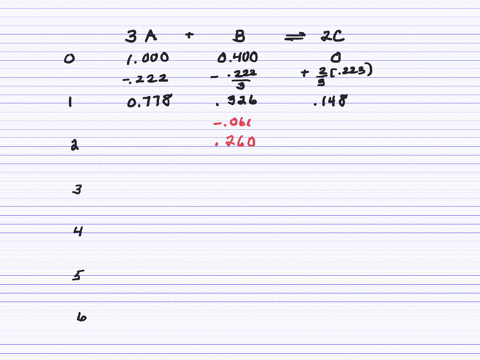 3 A + B ⇌ 2C
0 1.000 0.400 0
-.222 - .222/3 + 2/3(.223)
1 0.778 .326 .148
-.066
2 .260
3
4
5
6